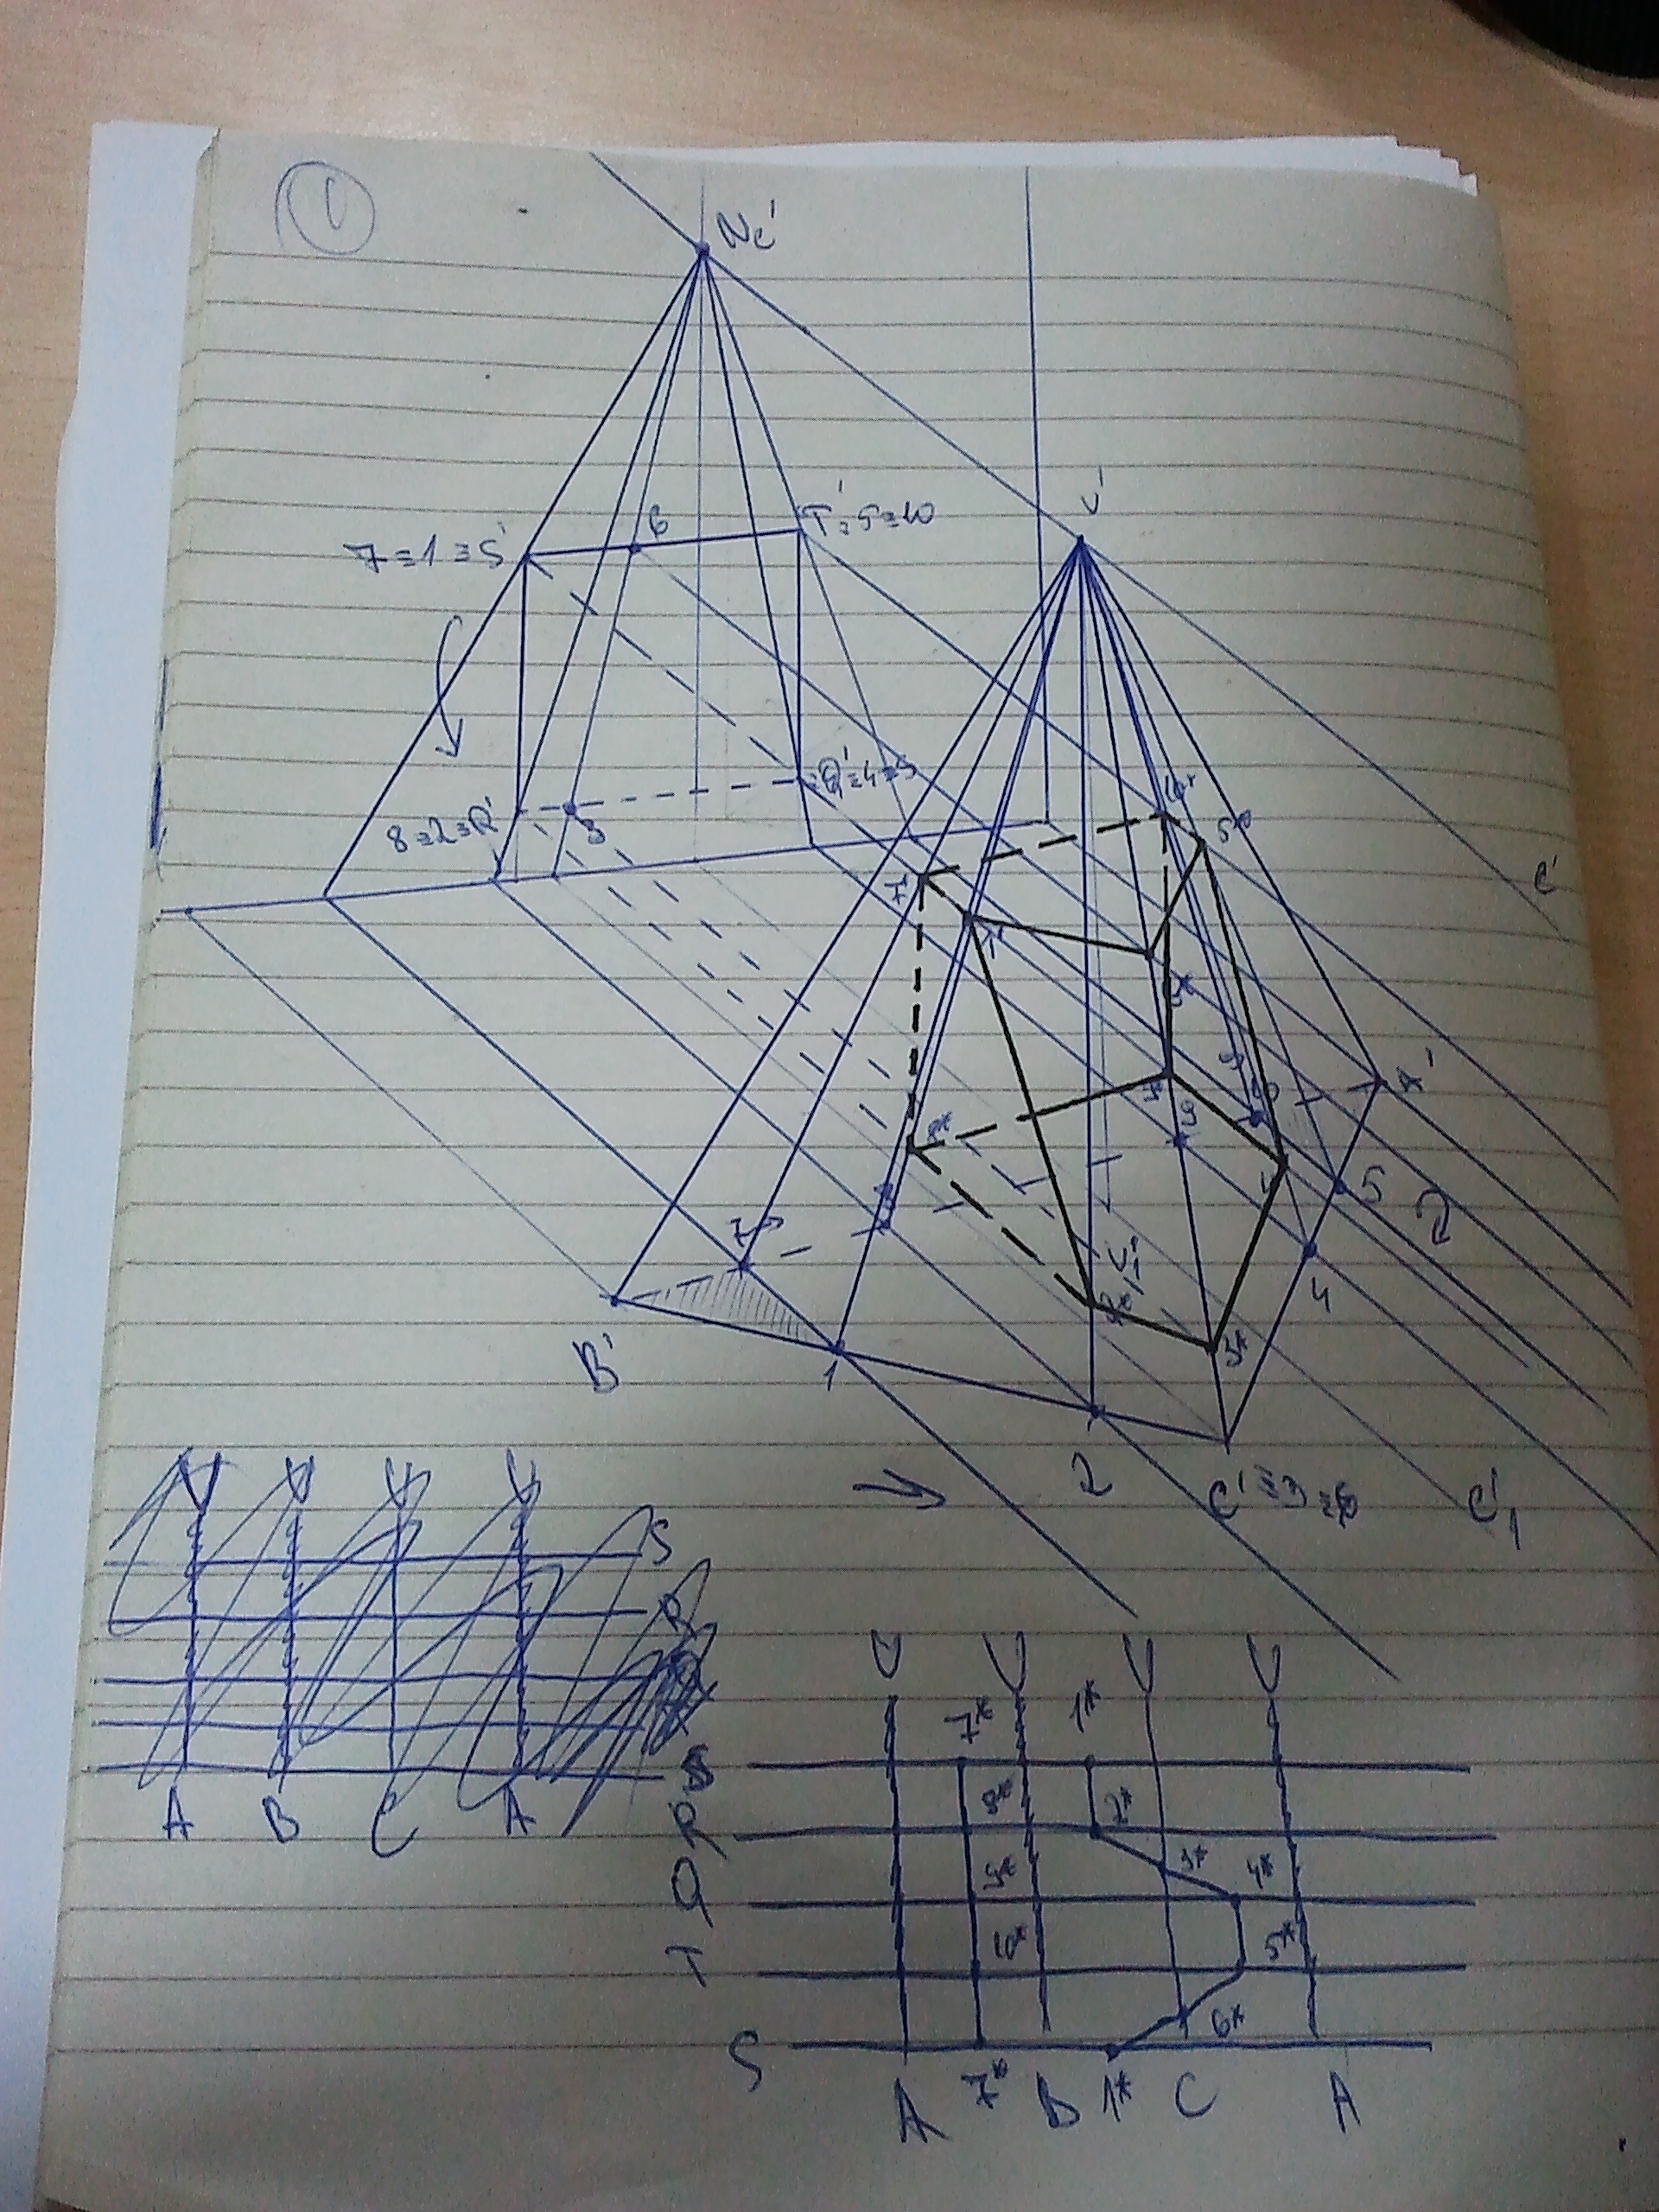 1
Nc'
V'
6
T'≡5≡10
7≡1≡S'
≡Q'≡4≡9
8≡2≡R'
3
10*
5*
C'
7*
1*
6*
A'
9*
9
10
8*
4*
5
8
7
V₁'
2*
4
3*
B'
1
2
C'≡3≡6
C₁'
V V V V
S
R
A B C A
V V V V
7* 1*
S
8* 2*
R
9* 3* 4*
Q
10* 5*
T
6*
S
A 7* B 1* C A